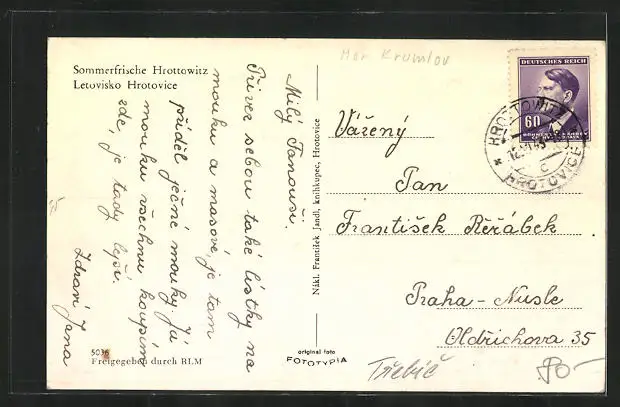 Sommerfrische Hrottowitz
Letovisko Hrotovice
Milý Fanouši.
Přivez sebou také lístky na
mouku a masové, je tam
příděl ječné mouky. Já
mouku všechnu koupím
zde, je tady lepší.
Zdraví Jana
5036
Freigegeben durch RLM
Nákl. František Jandl, knihkupec, Hrotovice
original foto
FOTOTYPIA
Mor Krumlov
DEUTSCHES REICH
60
BÖHMEN u. MÄHREN
HROTTOWITZ
HROTOVICE
c
Vážený
Pan
František Řeřábek
Praha-Nusle
Oldřichova 35
Třebíč